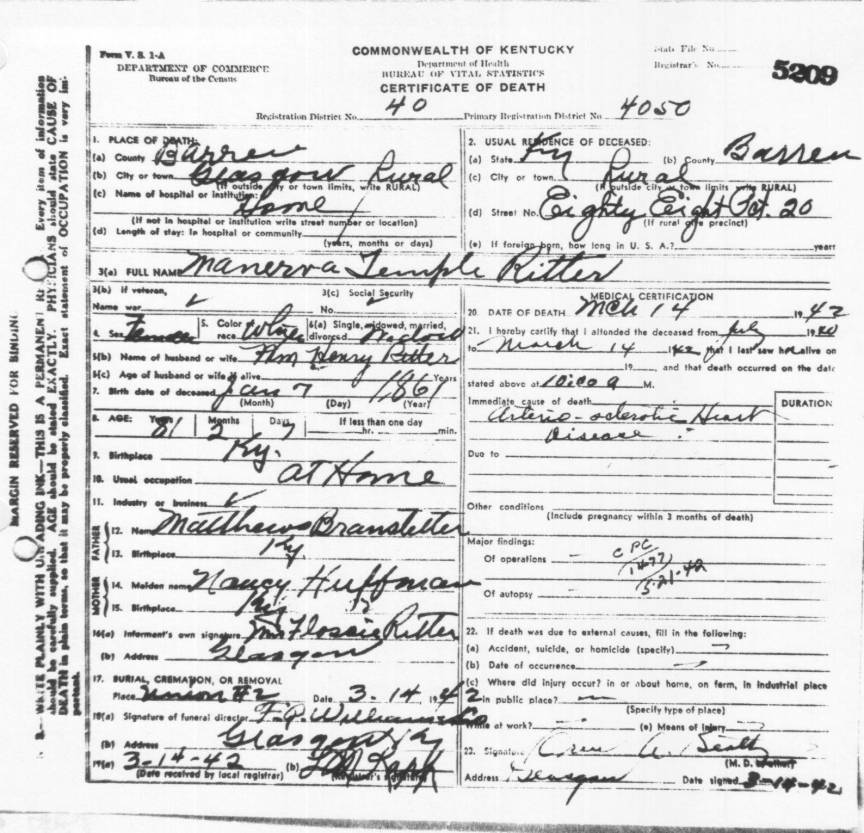 Form V. S. 1-A
DEPARTMENT OF COMMERCE
Bureau of the Census
COMMONWEALTH OF KENTUCKY
Department of Health
BUREAU OF VITAL STATISTICS
CERTIFICATE OF DEATH
State File No.
Registrar's No.
5209
Registration District No. 40 Primary Registration District No. 4050
MARGIN RESERVED FOR BINDING
B.—WRITE PLAINLY WITH UNFADING INK—THIS IS A PERMANENT Every item of information
should be carefully supplied. AGE should be stated EXACTLY. PHYSICIANS should state CAUSE OF
DEATH in plain terms, so that it may be properly classified. Exact statement of OCCUPATION is very im-
portant.
1. PLACE OF DEATH:
(a) County Barren
(b) City or town Glasgow Rural
(If outside city or town limits, write RURAL)
(c) Name of hospital or institution:
Home
(If not in hospital or institution write street number or location)
(d) Length of stay: In hospital or community
(years, months or days)
2. USUAL RESIDENCE OF DECEASED:
(a) State Ky (b) County Barren
(c) City or town Rural
(If outside city or town limits write RURAL)
(d) Street No. Eighty Eight Pct. 20
(If rural give precinct)
(e) If foreign born, how long in U. S. A.? years
3(a) FULL NAME Manerva Temple Ritter
3(b) If veteran,
Name war ✓
3(c) Social Security
No. ✓
4. Sex Female 5. Color or race White 6(a) Single, widowed, married, divorced Widow
6(b) Name of husband or wife Wm Henry Ritter
6(c) Age of husband or wife if alive Years
7. Birth date of deceased Jan 7 1861
(Month) (Day) (Year)
8. AGE: Years 81 Months 2 Days 7 If less than one day
hr. min.
9. Birthplace Ky.
10. Usual occupation at Home
11. Industry or business ✓
FATHER
12. Name Matthews Branstetter
13. Birthplace Ky.
MOTHER
14. Maiden name Nancy Huffman
15. Birthplace Ky
16(a) Informant's own signature Flossie Ritter
(b) Address Glasgow
17. BURIAL, CREMATION, OR REMOVAL
Place Union #2 Date 3-14 1942
18(a) Signature of funeral director
(b) Address Glasgow Ky
19(a) 3-14-42 (b)
(Date received by local registrar) (Registrar's signature)
MEDICAL CERTIFICATION
20. DATE OF DEATH Mch 14 1942
21. I hereby certify that I attended the deceased from July 1920
to March 14 1942 that I last saw her alive on
19 , and that death occurred on the date
stated above at M.
Immediate cause of death
Arterio-sclerotic Heart
Disease
DURATION
Due to
Other conditions
(Include pregnancy within 3 months of death)
Major findings:
Of operations
Of autopsy
CPC
1477
3-21-42
22. If death was due to external causes, fill in the following:
(a) Accident, suicide, or homicide (specify)
(b) Date of occurrence
(c) Where did injury occur? in or about home, on farm, in industrial place
in public place?
(Specify type of place)
While at work? (e) Means of injury
23. Signature
(M. D. or other)
Address Glasgow Date signed 3-14-42